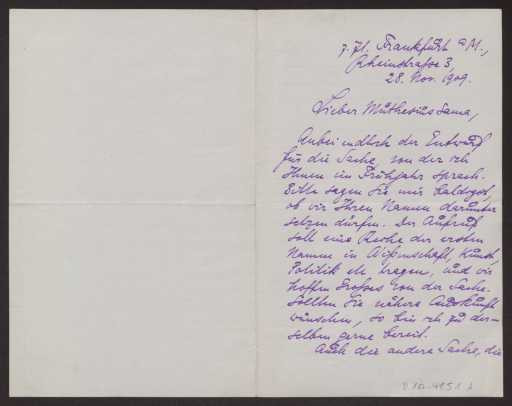 z. Zt. Frankfurt a M.,
Rheinstrasse 3,
28. Nov. 1909.
Lieber Muthesius Sama,
Anbei endlich der Entwurf
für die Sache, von der ich
Ihnen im Frühjahr sprach.
Bitte sagen Sie mir baldigst,
ob wir Ihren Namen darunter
setzen dürfen. Der Aufruf
soll eine Reihe der ersten
Namen in Wissenschaft, Kunst,
Politik etc tragen, und wir
hoffen Grosses von der Sache.
Sollten Sie nähere Auskunft
wünschen, so bin ich zu der-
selben gerne bereit.
Auch die andere Sache, die